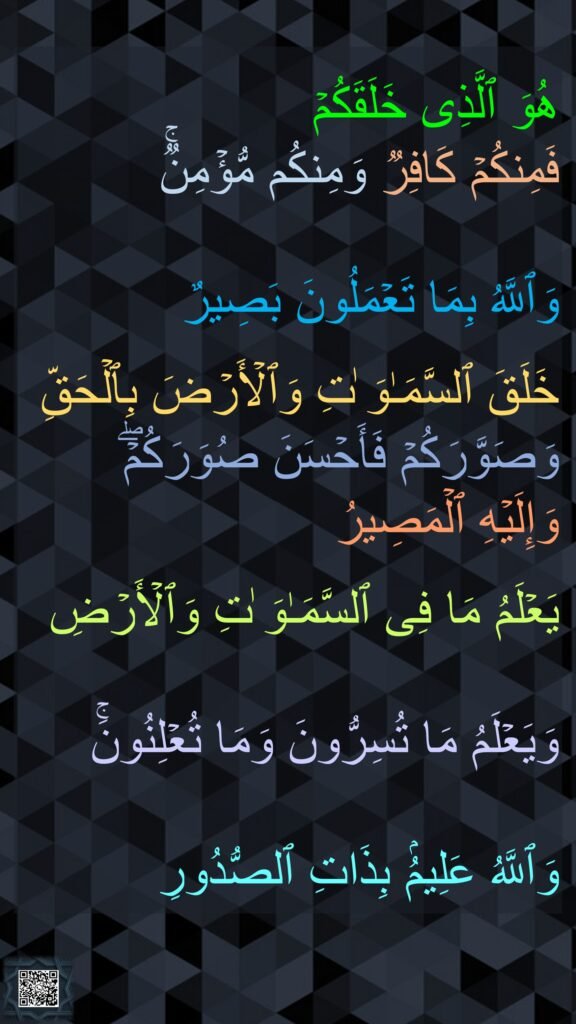 هُوَ ٱلَّذِى خَلَقَكُمۡ
فَمِنكُمۡ كَافِرٌ وَمِنكُم مُّؤۡمِنٌۚ
وَٱللَّهُ بِمَا تَعۡمَلُونَ بَصِيرٌ
خَلَقَ ٱلسَّمَـٰوَ ٰتِ وَٱلۡأَرۡضَ بِٱلۡحَقِّ
وَصَوَّرَكُمۡ فَأَحۡسَنَ صُوَرَكُمۡۖ
وَإِلَيۡهِ ٱلۡمَصِيرُ
يَعۡلَمُ مَا فِى ٱلسَّمَـٰوَ ٰتِ وَٱلۡأَرۡضِ
وَيَعۡلَمُ مَا تُسِرُّونَ وَمَا تُعۡلِنُونَۚ
وَٱللَّهُ عَلِيمُۢ بِذَاتِ ٱلصُّدُورِ